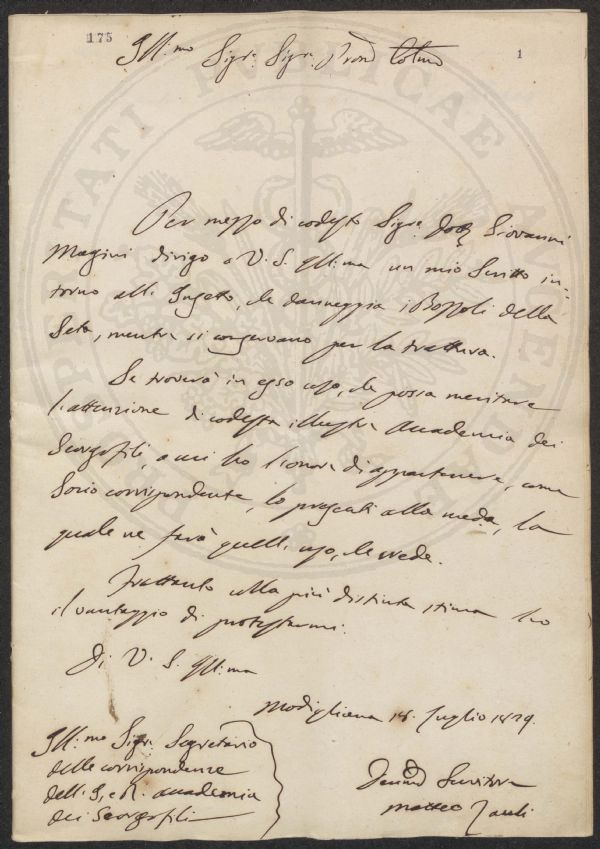 175
1
Ill.mo Sigr. Sigr. Pron
Per mezzo di codesto Sigre. Dott. Giovanni
Magini dirigo a V. S. Ill.ma un mio Scritto in=
torno all' Insetto, che danneggia i Bozzoli della
Seta, mentre si conservano per la trattura.
Se troverà in esso cosa, che possa meritare
l'attenzione di codesta illustre Accademia dei
Georgofili, a cui ho l'onore di appartenere, come
Socio corrispondente, lo presenti alla meda., la
quale ne farà quell' uso, che crede.
Frattanto colla più distinta stima ho
il vantaggio di protestarmi.
Di V. S. Ill.ma
Modigliana 18. Luglio 1829.
Ill.mo Sigr. Segretario
delle corrispondenze
dell' I. e R. Accademia
dei Georgofili
Servitore
Matteo Zauli
PROSPERITATI PUBLICAE AUGENDAE